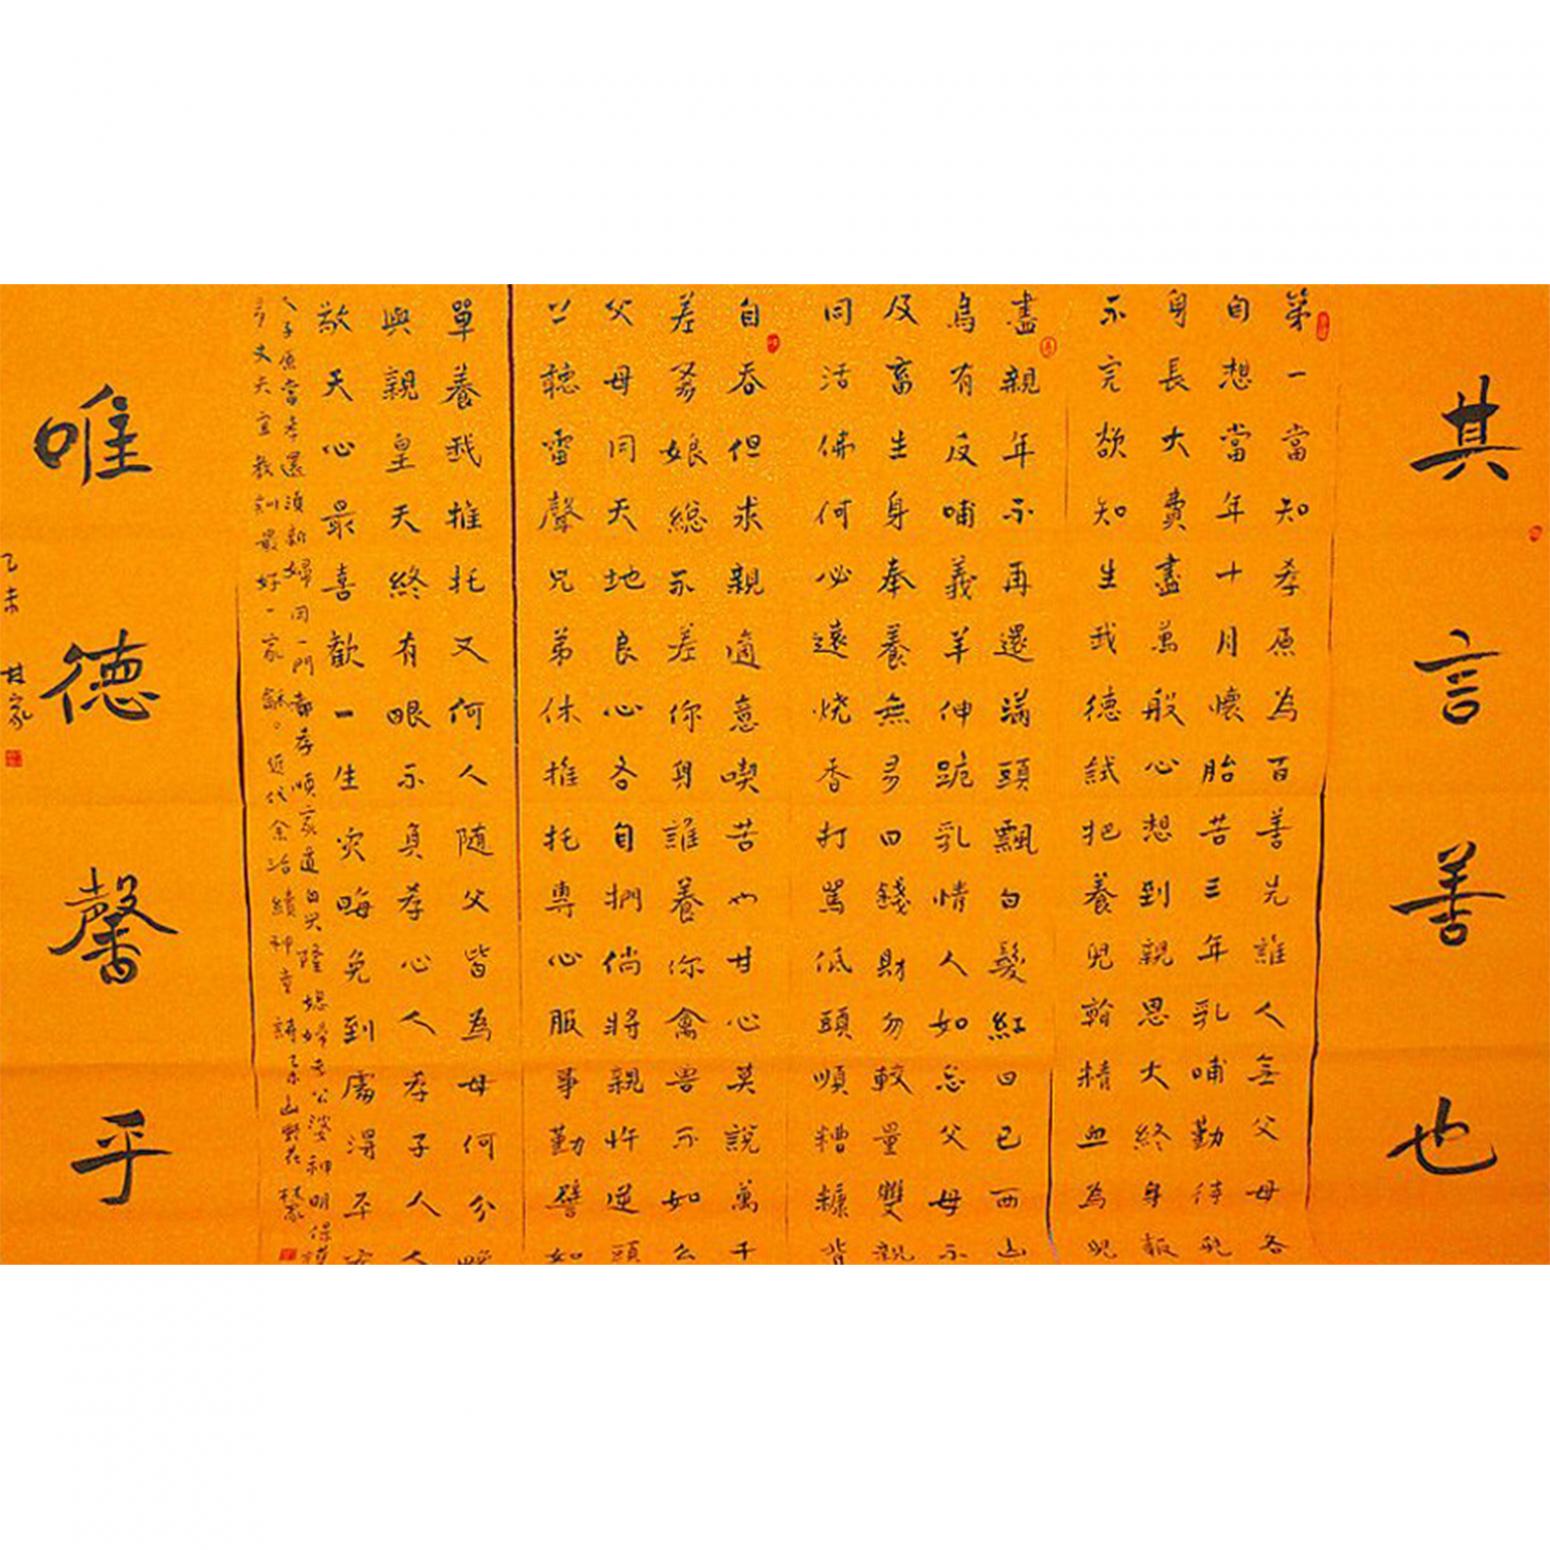 其言善也
第一當知孝原為百善先誰人無父母各
自想當年十月懷胎苦三年乳哺勤待兒
身長大費盡萬般心想到親恩大終身報
不完欲知生我德試把養兒看精血為兒
盡親年不再還滿頭飄白髮紅日已西山
烏有反哺義羊伸跪乳情人如忘父母不
及畜生身奉養無易曰錢財勿較量雙親
同活佛何必遠燒香打罵低頭順糟糠背
自吞但求親適意喫苦也甘心莫說萬千
差爹娘總不差你身誰養你禽獸不如么
父母同天地良心各自捫倘將親忤逆頭
上聽雷聲兄弟休推托專心服事勤譬如
單養我推托又何人隨父皆為母何分
與親皇天終有眼不負孝心人孝子人人
敬天心最喜歡一生災晦免到處得平安
人子原當孝還須新婦同一門都孝順家道自興隆媳婦孝公婆神明保護
丈夫宜教訓最好一家和近代余治續神童詩乙未
唯德馨乎
乙未
林家